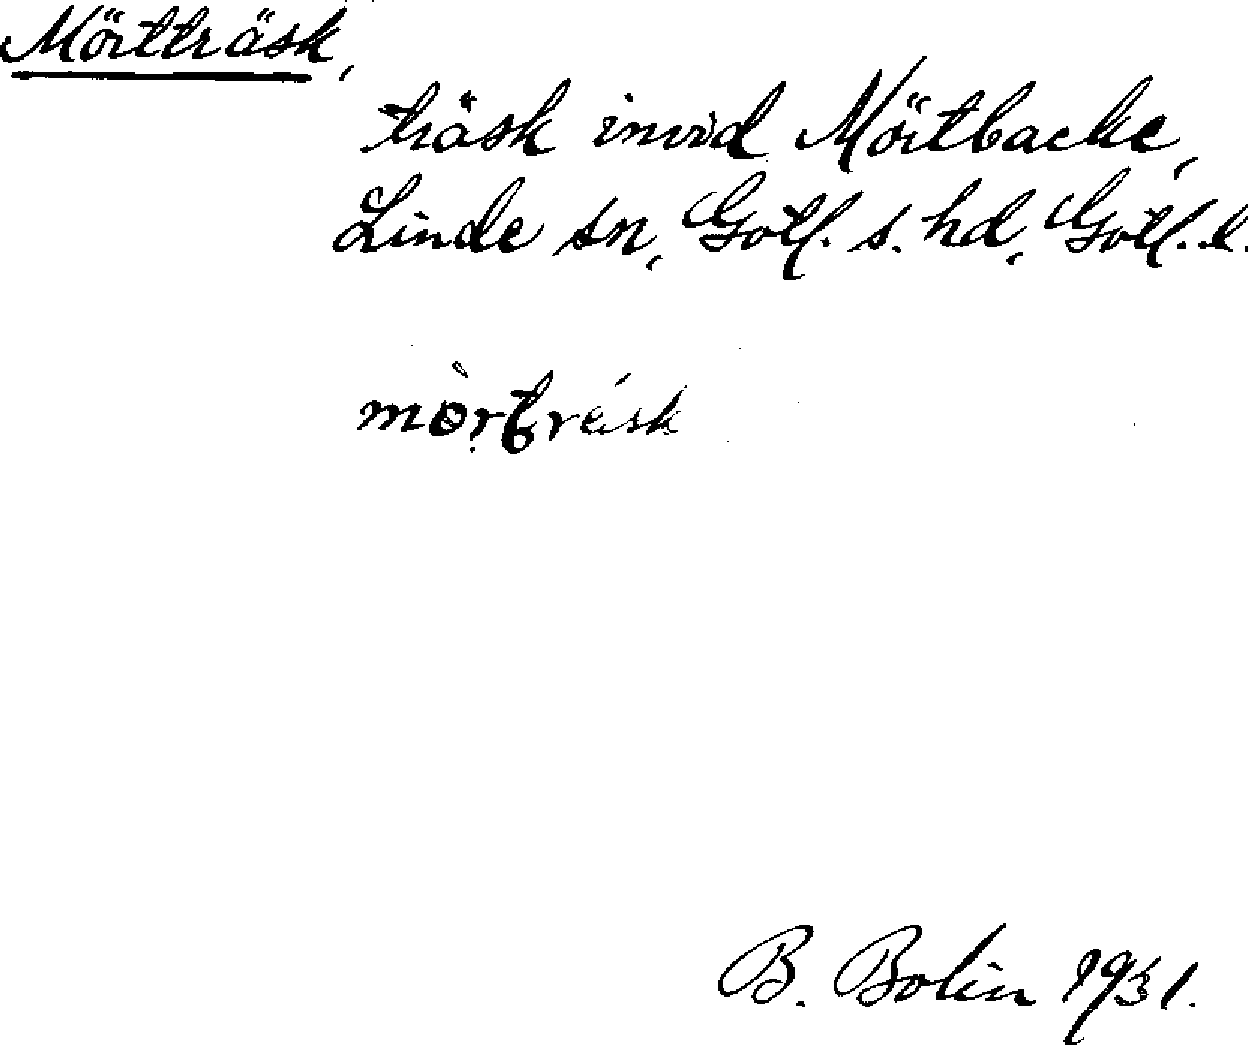 Mörtträsk,
träsk invid Mörtbacke,
Linde sn, Gotl. s. hd, Gotl. l.
B. Bolin 1931.